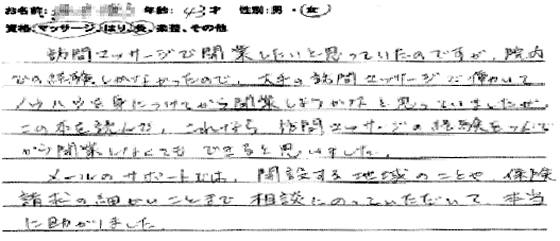 お名前: 年齢: 43才 性別:男・女
資格:マッサージ、はり、灸、柔整、その他
訪問マッサージで開業したいと思っていたのですが、院内
での経験しかなかったので、大手の訪問マッサージで働いて
ノウハウを身につけてから開業しようかなと思っていましたが、
この本を読んだら、これなら訪問マッサージの経験をつんで
から開業しなくてもできると思いました。
メールのサポートでは、開設する地域のことや、保険
請求の細かいことまで相談にのっていただいて、本当
に助かりました。